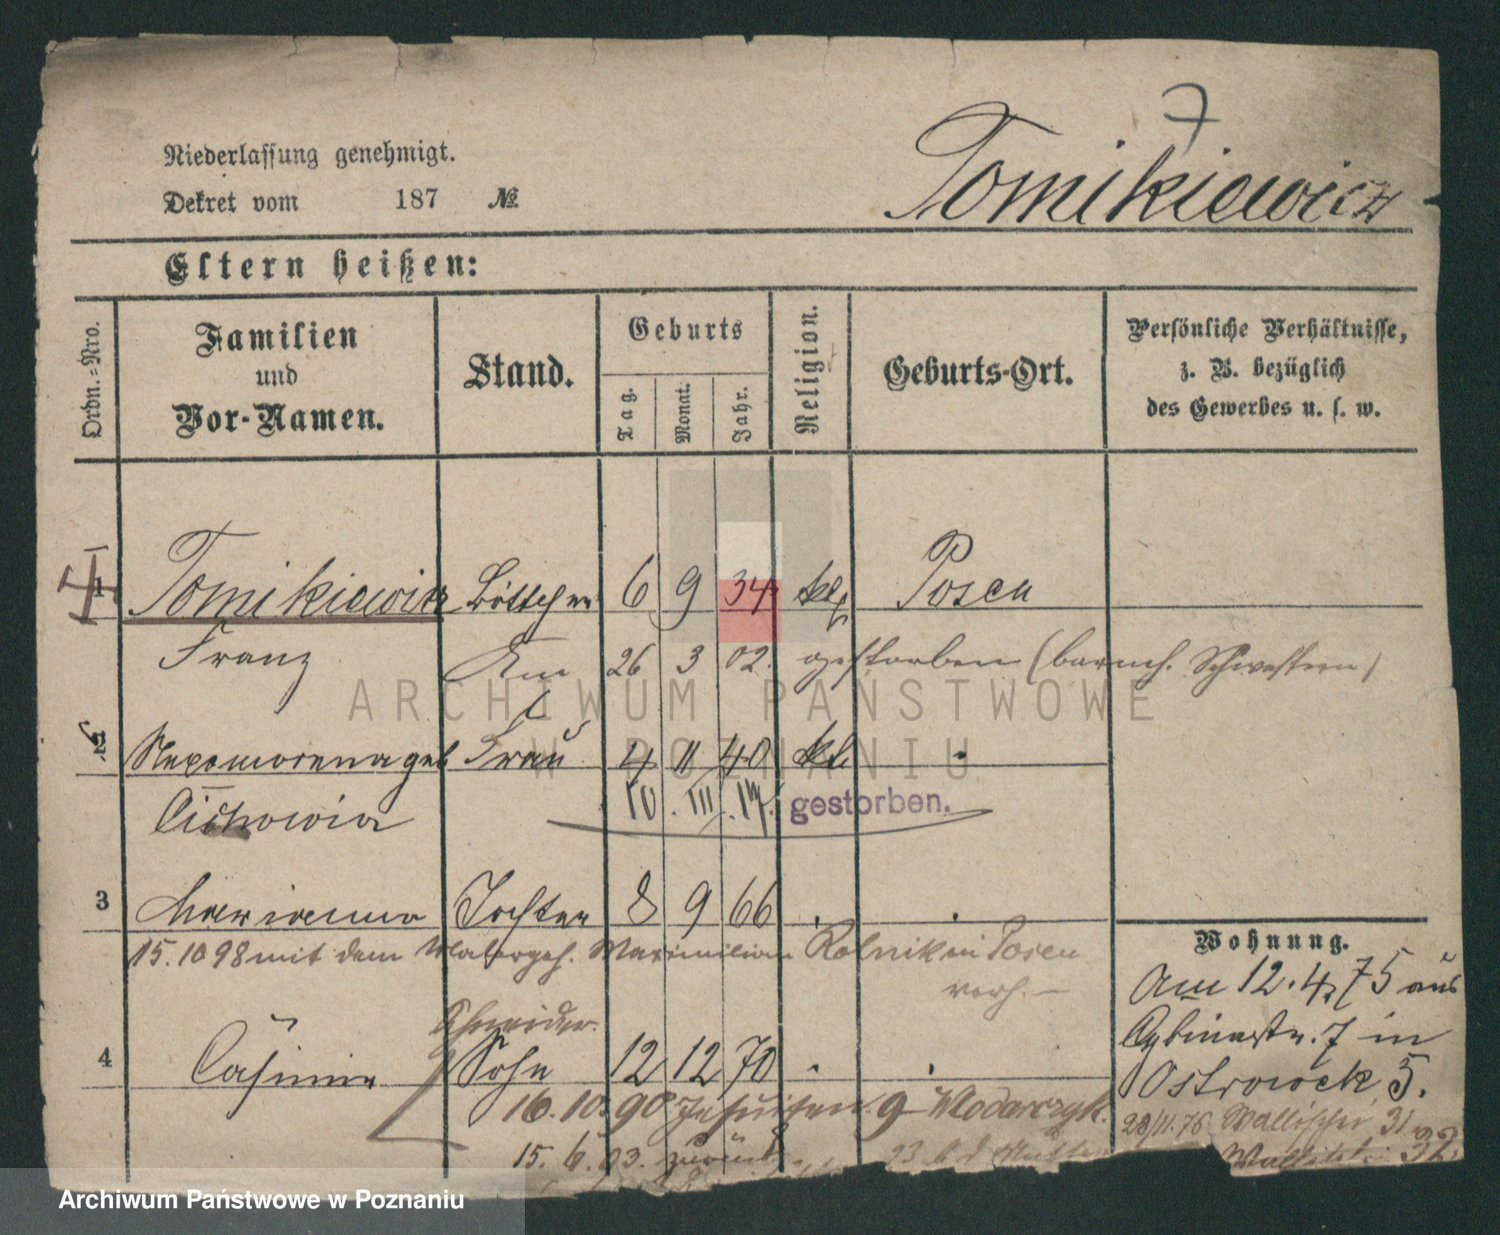 7
Niederlassung genehmigt.
Dekret vom 187 №
Tomikiewicz
Eltern heißen:
Ordn.=Nro.
Familien und Vor-Namen.
Stand.
Geburts
Tag. Monat. Jahr.
Religion.
Geburts-Ort.
Persönliche Verhältnisse,
z. B. bezüglich
des Gewerbes u. s. w.
1 Tomikiewicz Böttcher 6 9 34 kth Posen
Franz 26 3 02. gestorben (barmh. Schwestern)
2 Nepomorena geb Frau 4 11 40 kt.
Cichowicz 10. III. 17. gestorben.
3 Marianna Tochter 8 9 66
15.10 98 mit dem Malergeh. Maximilian Rolnik in Posen
verh. —
Schneider.
4 Casimir Sohn 12 12 70
16. 10. 90 Jesuitenstr. 9 Wlodarczyk.
15. 6. 03. zurück
Wohnung.
Am 12. 4. 75 aus
Cybinastr. 7 in
Ostrowek 5.
28/11. 76 Wallischei 31
Wallischei 32
ARCHIWUM PAŃSTWOWE
W POZNANIU
Archiwum Państwowe w Poznaniu